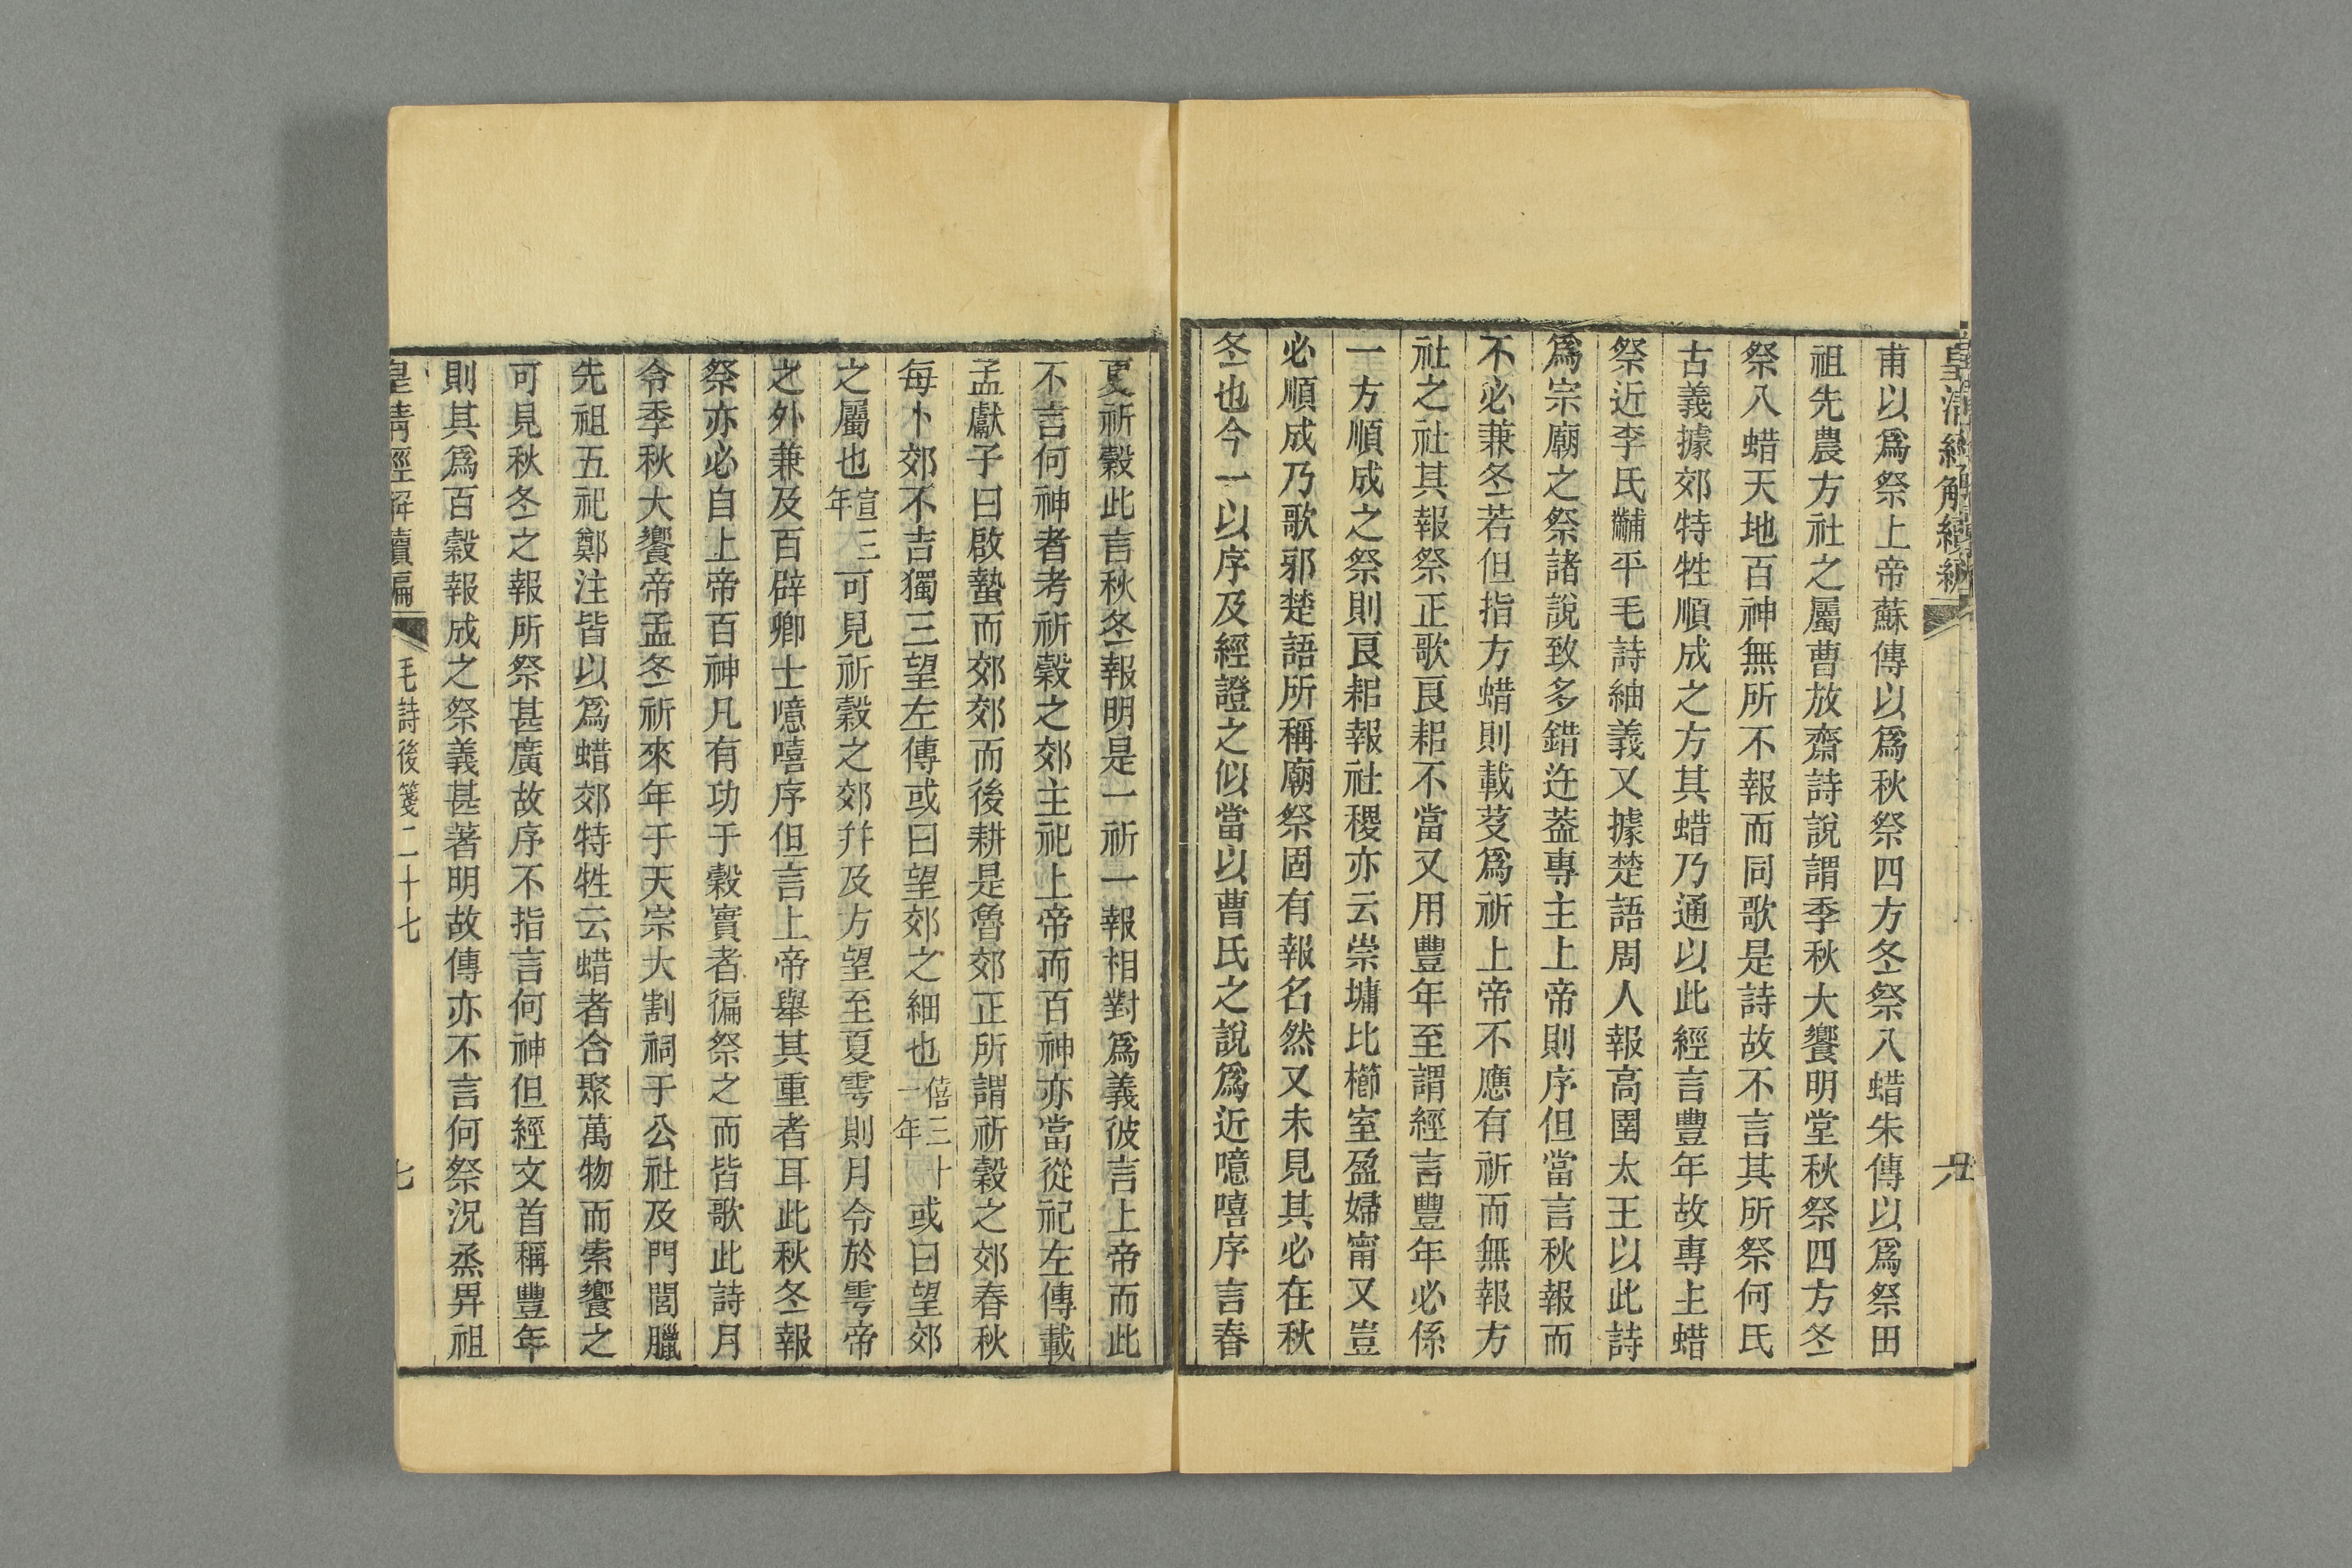 皇清經解續編
六
甫以爲祭上帝蘇傳以爲秋祭四方冬祭八蜡朱傳以爲祭田
祖先農方社之屬曹放齋詩說謂季秋大饗明堂秋祭四方冬
祭八蜡天地百神無所不報而同歌是詩故不言其所祭何氏
古義據郊特牲順成之方其蜡乃通以此經言豐年故專主蜡
祭近李氏黼平毛詩紬義又據楚語周人報高圉太王以此詩
爲宗廟之祭諸說致多錯迕葢專主上帝則序但當言秋報而
不必兼冬若但指方蜡則載芟爲祈上帝不應有祈而無報方
社之社其報祭正歌良耜不當又用豐年至謂經言豐年必係
一方順成之祭則良耜報社稷亦云崇墉比櫛室盈婦甯又豈
必順成乃歌邪楚語所稱廟祭固有報名然又未見其必在秋
冬也今一以序及經證之似當以曹氏之說爲近噫嘻序言春
夏祈穀此言秋冬報明是一祈一報相對爲義彼言上帝而此
不言何神者考祈穀之郊主祀上帝而百神亦當從祀左傳載
孟獻子曰啟蟄而郊郊而後耕是魯郊正所謂祈穀之郊春秋
每卜郊不吉獨三望左傳或曰望郊之細也僖三十一年或曰望郊
之屬也宣三年可見祈穀之郊幷及方望至夏雩則月令於雩帝
之外兼及百辟卿士噫嘻序但言上帝舉其重者耳此秋冬報
祭亦必自上帝百神凡有功于穀實者徧祭之而皆歌此詩月
令季秋大饗帝孟冬祈來年于天宗大割祠于公社及門閭臘
先祖五祀鄭注皆以爲蜡郊特牲云蜡者合聚萬物而索饗之
可見秋冬之報所祭甚廣故序不指言何神但經文首稱豐年
則其爲百穀報成之祭義甚著明故傳亦不言何祭況烝畀祖
皇清經解續編
毛詩後箋二十七
七